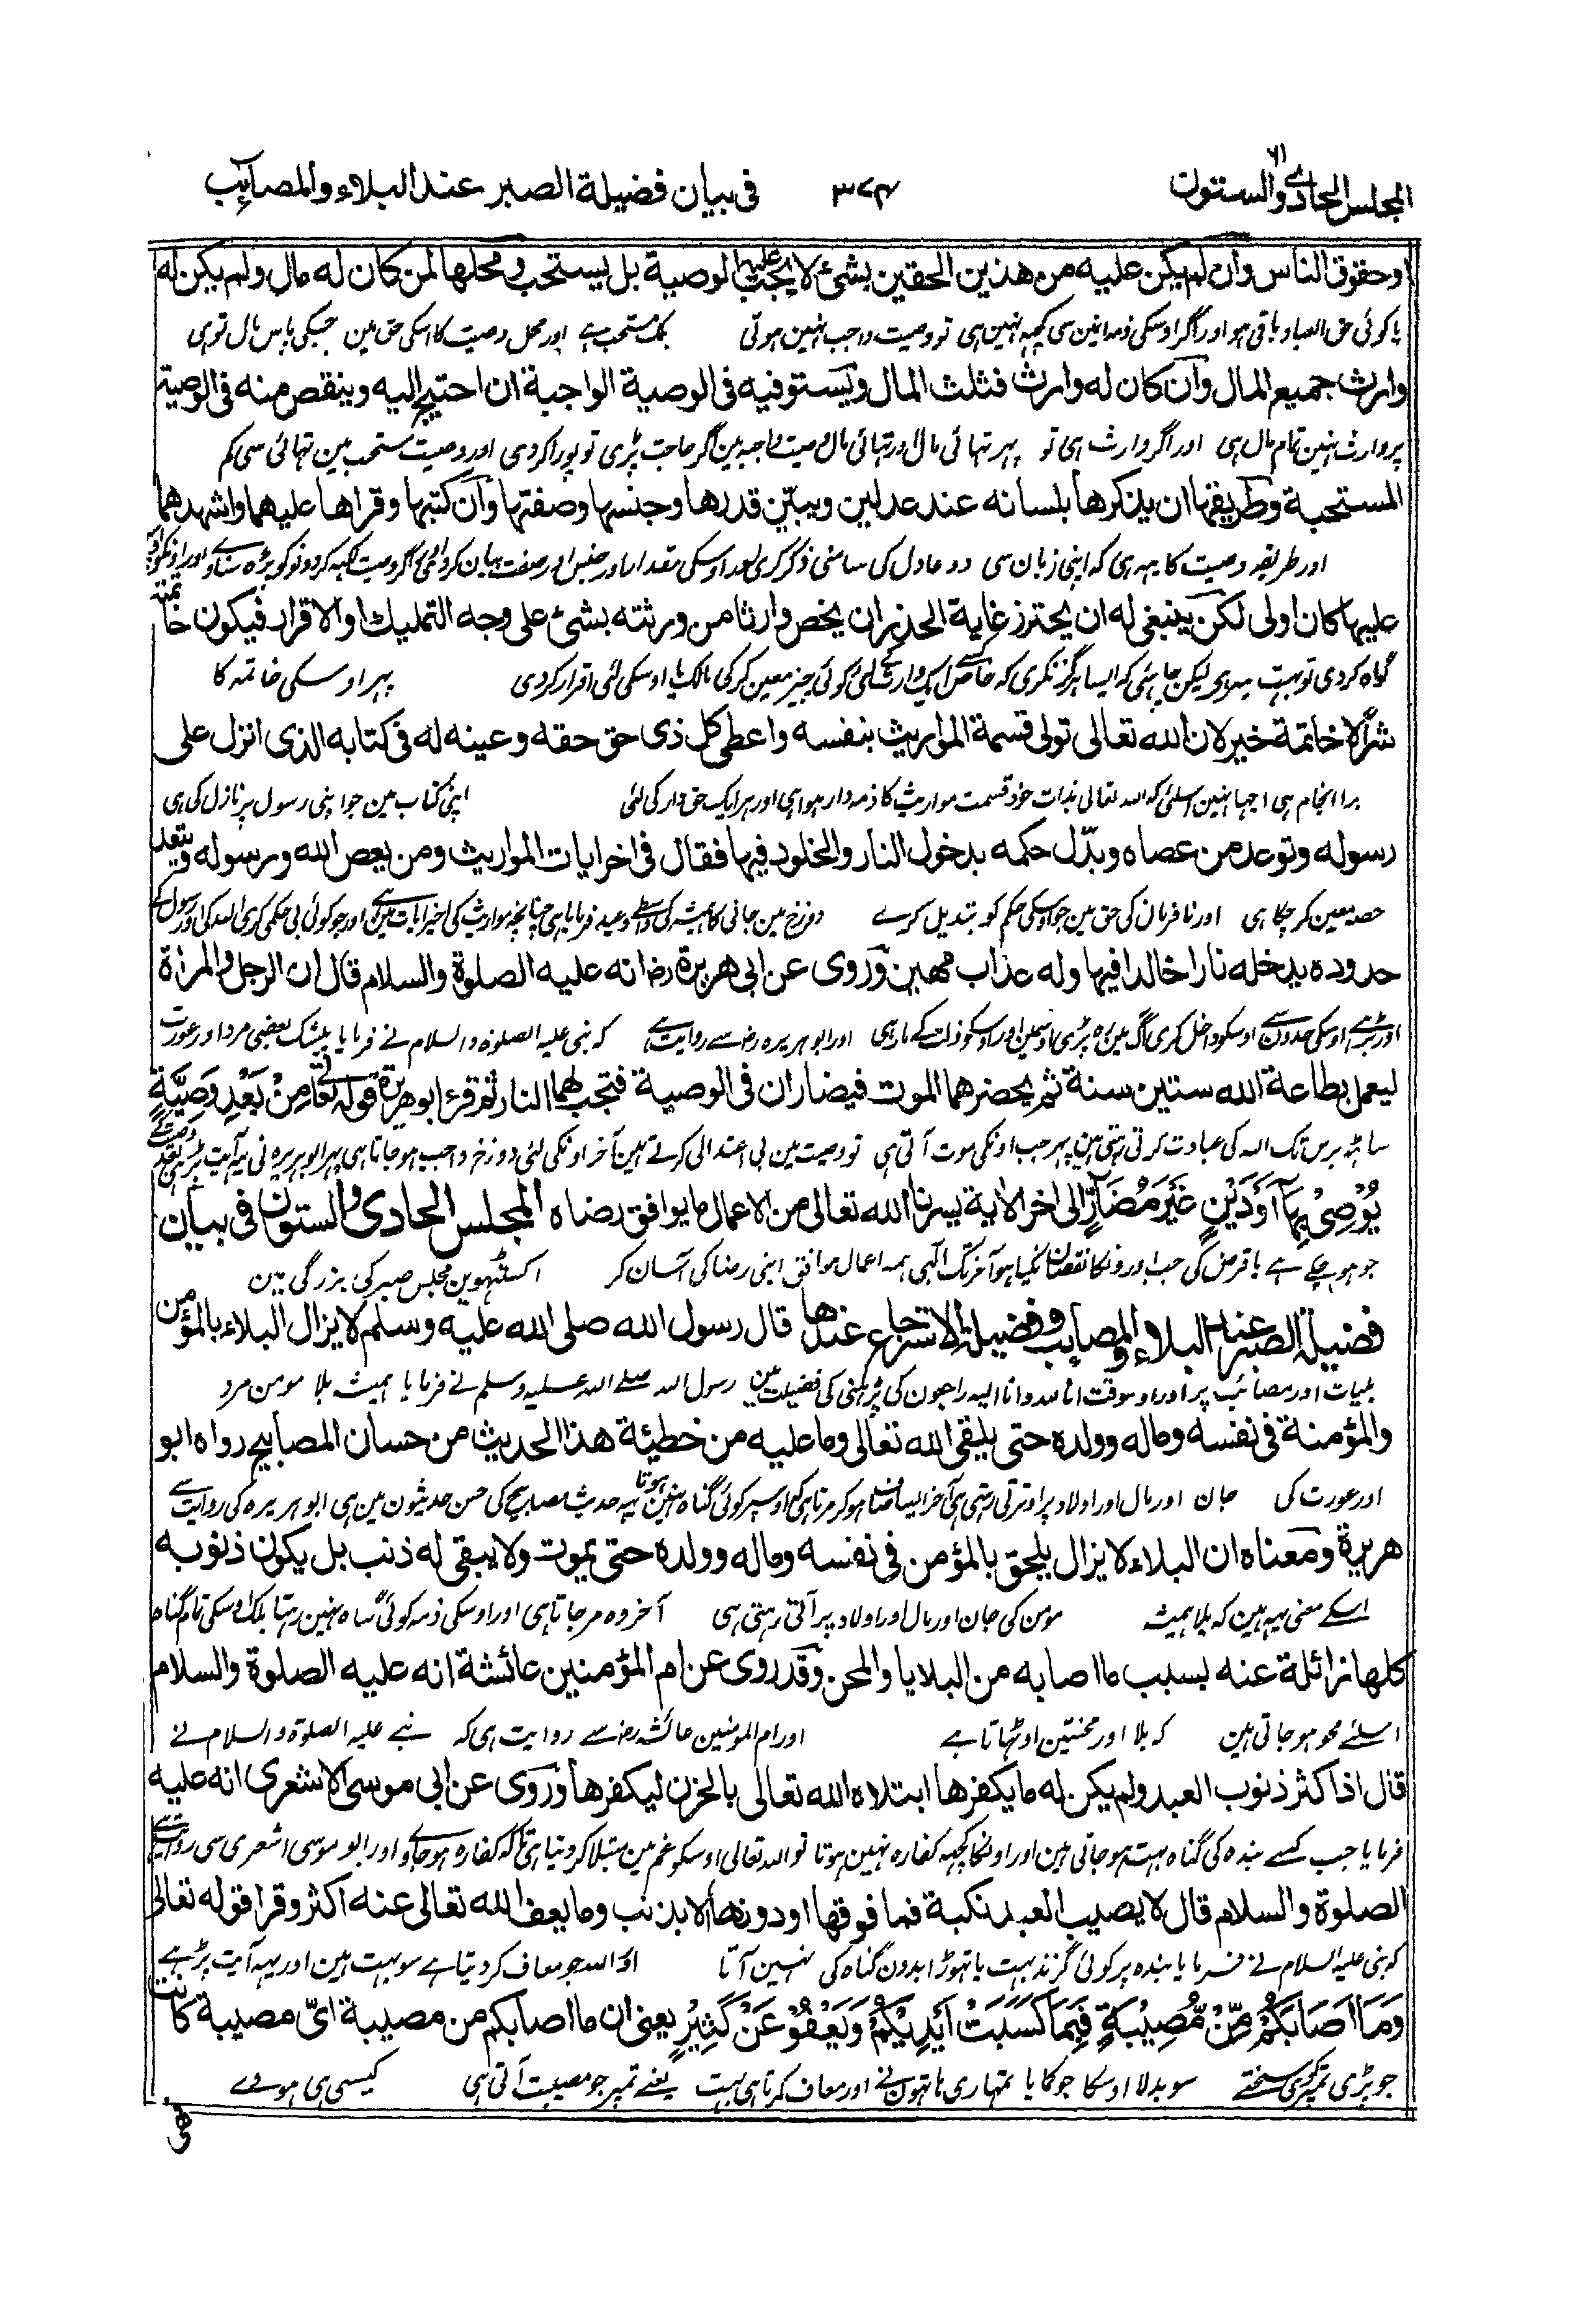 المجلس الحادي والستون ٦١
٣٧٤
في بيان فضيلة الصبر عند البلاء والمصائب
اوحقوق الناس وان لم يكن عليه من هذين الحقين بشئ لا يجب عليه الوصية بل يستحب ومحلها لمن كان له مال ولم يكن له
یا کوئی حق العباد باقی ہو اور اگر اوسکی ذمہ انین سی کچہہ نہین ہی تو وصیت واجب نہین ہوتی بلکہ مستحب ہے اور محل وصیت کا اسکی حق مین جسکی پاس مال تو ہی
وارث جميع المال وان كان له وارث فثلث المال ويستوفيه فى الوصية الواجبة ان احتيج اليه وينقص منه فى الوصية
پر وارث نہین تمام مال ہی اور اگر وارث ہی تو پہر تہائی مال اور تہائی مال وصیت واجبہ مین اگر حاجت پڑی تو پورا کردی اور وصیت مستحب مین تہائی سی کم
المستحبة وطريقها ان يذكرها بلسانه عند عدلين ويبيّن قدرها وجنسها وصفتها وان كتبها وقراها عليهما واشهدهما
اور طریقہ وصیت کا یہہ ہی کہ اپنی زبان سی دو عادل کی سامنی ذکر کری اور اوسکی مقدار اور جنس اور صفت بیان کردی اگر وصیت لکہہ کر دونو کو پڑہ سناوے اور اونکو اوسپر
عليها كان اولى لكن ينبغى له ان يحترز غاية الحذر ان يخص وارثا من ورثته بشئ على وجه التمليك او الاقرار فيكون خاتمته
گواہ کردی تو بہت بہتر ہی لیکن چاہئی کہ ایسا ہرگز نکری کہ خاص کسی ایک وارث کے لئی کوئی چیز معین کر کی مالک یا اوسکی لئی اقرار کردی پہر اوسکی خاتمہ کا
شرّا لا خاتمة خير لان الله تعالى تولى قسمة المواريث بنفسه واعطى كل ذى حق حقه وعينه له فى كتابه الذى انزل على
برا انجام ہی اچہا نہین اسلئی کہ اللہ تعالی بذات خود قسمت مواریث کا ذمہ دار ہوا ہی اور ہر ایک حق دار کی لئی اپنی کتاب مین جو اپنی رسول پر نازل کی ہی
رسوله وتوعد من عصاه وبدّل حكمه بدخول النار والخلود فيها فقال فى اخر ايات المواريث ومن يعص الله ورسوله ويتعد
حصہ معین کر چکا ہی اور نافرمان کی حق مین جو اوسکی حکم کو تبدیل کرے دوزخ مین جانی کا ہمیشہ کی واسطے وعید فرمایا ہی چنانچہ مواریث کی اخیر آیات مین ہے اور جو کوئی بی حکمی کری اللہ کی اور رسول کے
حدوده يدخله نارا خالدا فيها وله عذاب مهين وروى عن ابى هريرة رض انه عليه الصلوة والسلام قال ان الرجل والمراة
اور بڑہے اوسکی حدون سے اوسکو داخل کری آگ مین رہ پڑی اوسمین اور اوسکو ذلت کے مار ہی اور ابو ہریرہ رض سے روایت ہے کہ نبی علیہ الصلوۃ والسلام نے فرمایا بیشک بعضی مرد اور عورت
ليعمل بطاعة الله ستين سنة ثم يحضرهما الموت فيضاران فى الوصية فتجب لهما النار ثم قرء ابو هريرة قوله تعالى مِنْ بَعْدِ وَصِيَّةٍ
ساٹہہ برس تک اللہ کی عبادت کرتی رہتی ہین پہر جب اونکی موت آتی ہی تو وصیت مین بی اعتدالی کرتے ہین آخر اونکی لئی دوزخ واجب ہو جاتا ہی پہر ابو ہریرہ نی یہہ آیت پڑہی بعد وصیت کے
يُوْصٰى بِهَآ اَوْدَيْنٍ غَيْرَ مُضَآرٍّ الى اخر الاية يسرنا الله تعالى من الاعمال ما يوافق رضاه المجلس الحادى والستون فى بيان
جو ہو چکے ہے یا قرض کی جب اورونکا نقصان نکیا ہو آخر تک الہی ہمہ اعمال موافق اپنی رضا کی آسان کر اکسٹہوین مجلس صبر کی بزرگی مین
فضيلة الصبر عند البلاء والمصايب وفضيلة الاسترجاع عندها قال رسول الله صلى الله عليه وسلم لا يزال البلاء بالمؤمن
بلیات اور مصائب پر اور اوسوقت انا للہ وانا الیہ راجعون کی پڑہنی کی فضیلت مین رسول اللہ صلے اللہ علیہ وسلم نے فرمایا ہمیشہ بلا مومن مرد
والمؤمنة فى نفسه وماله وولده حتى يلقى الله تعالى وما عليه من خطيئة هذا الحديث من حسان المصابيح رواه ابو
اور عورت کی جان اور مال اور اولاد پر اوترتی رہتی ہی آخر ایسا صاف ہو کر مرتا ہی کہ اوسپر کوئی گناہ نہین ہوتا یہہ حدیث مصابیح کی حسن حدیثون مین ہی ابو ہریرہ کی روایت سے
هريرة ومعناه ان البلاء لا يزال يلحق بالمؤمن فى نفسه وماله وولده حتى يموت ولا يبقى له ذنب بل يكون ذنوبه
اسکے معنی یہہ ہین کہ بلا ہمیشہ مومن کی جان اور مال اور اولاد پر آتی رہتی ہی آخر وہ مر جاتا ہی اور اوسکی ذمہ کوئی گناہ نہین رہتا بلکہ اوسکی تمام گناہ
كلها زائلة عنه بسبب ما اصابه من البلايا والمحن وقد روى عن ام المؤمنين عائشة انه عليه الصلوة والسلام
اسلئے محو ہو جاتی ہین کہ بلا اور محنتین اوٹہاتا ہے اور ام المومنین عائشہ رض سے روایت ہی کہ نبے علیہ الصلوۃ والسلام نے
قال اذا كثر ذنوب العبد ولم يكن له ما يكفرها ابتلاه الله تعالى بالحزن ليكفرها وروى عن ابى موسى الاشعرى انه عليه
فرمایا جب کسے بندہ کی گناہ بہت ہو جاتی ہین اور اونکا کچہہ کفارہ نہین ہوتا تو اللہ تعالی اوسکو غم مین مبتلا کر دیتا ہی تا کہ کفارہ ہو جاوے اور ابو موسی اشعری سی روایت ہے
الصلوة والسلام قال لا يصيب العبد نكبة فما فوقها او دونها الا بذنب وما يعف الله تعالى عنه اكثر وقرا قوله تعالى
کہ نبی علیہ السلام نے فرمایا بندہ پر کوئی گزند بہت یا تہوڑا بدون گناہ کی نہین آتا اور اللہ جو معاف کر دیتا ہے سو بہت ہین اور یہہ آیت پڑہے
وَمَآ اَصَابَكُمْ مِّنْ مُّصِيْبَةٍ فَبِمَا كَسَبَتْ اَيْدِيْكُمْ وَيَعْفُوْ عَنْ كَثِيْرٍ يعنى ان ما اصابكم من مصيبة اىّ مصيبة كانت
جو پڑی تمپر کوئی سختے سو بدلا اوسکا جو کمایا تمہاری ہاتہون نے اور معاف کرتا ہی بہت یعنے تمپر جو مصیبت آتی ہی کیسی ہی ہووے